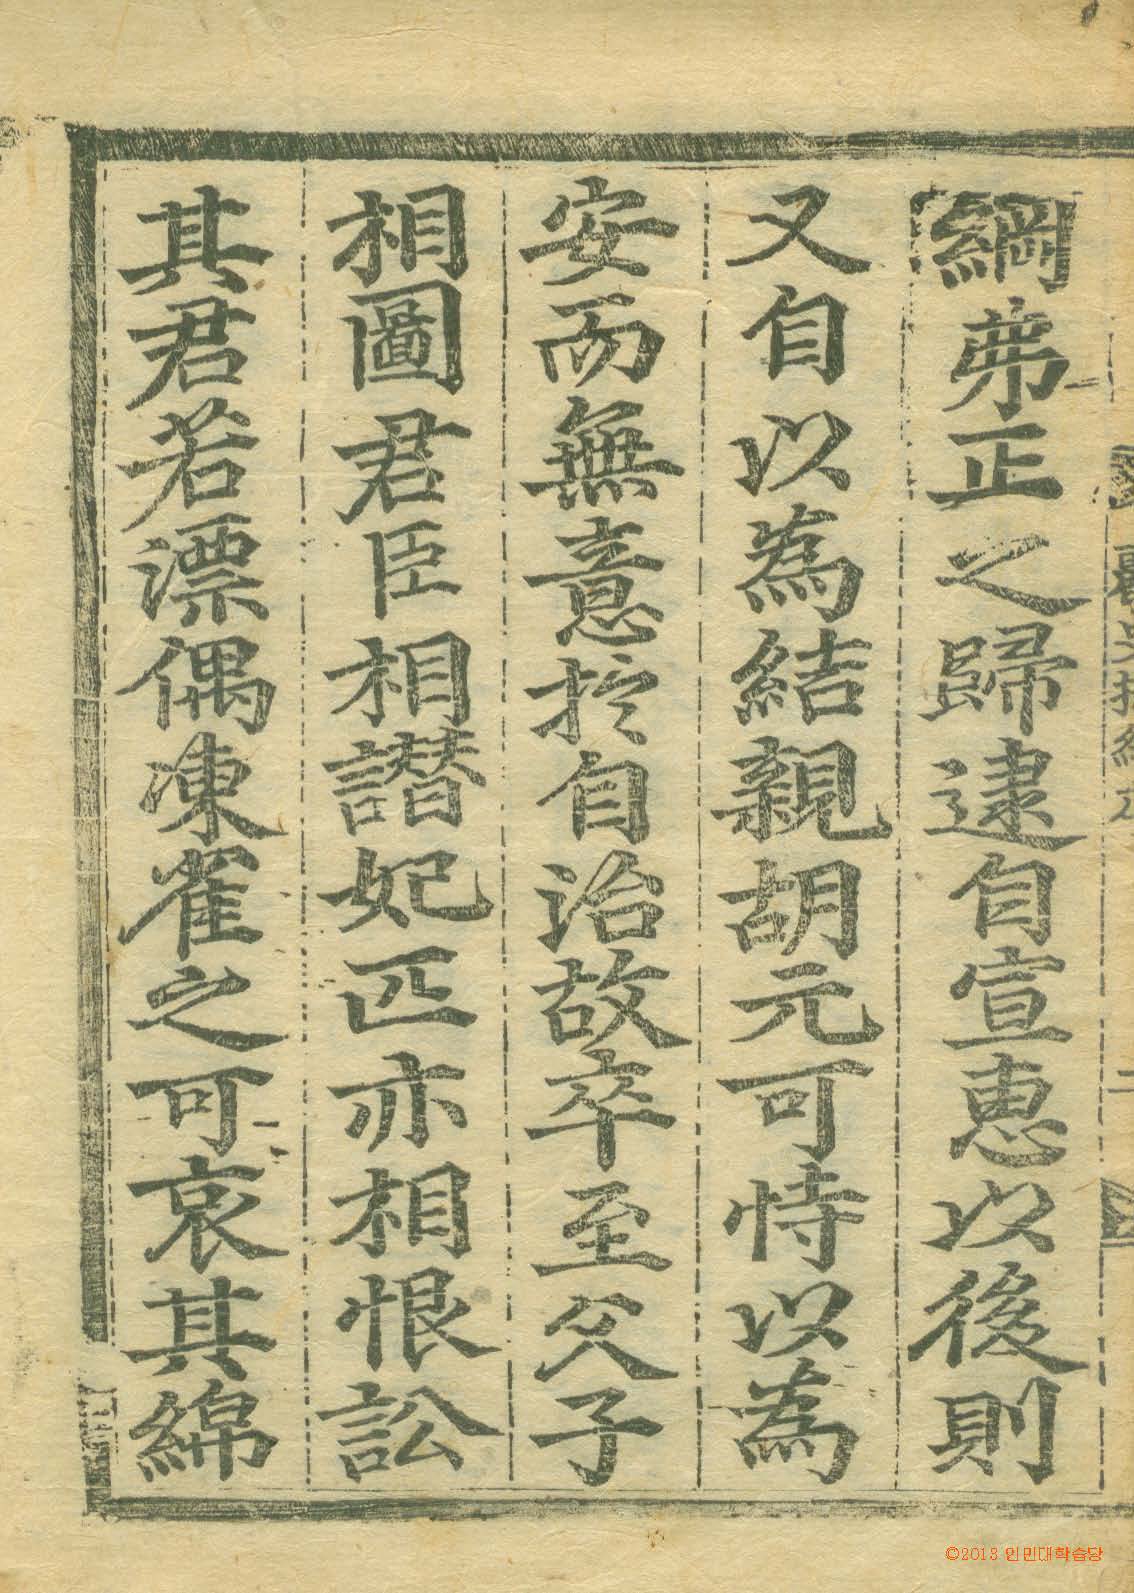 綱弗正之歸逮自宣惠以後則
又自以為結親胡元可恃以為
安而無意於自治故卒至父子
相圖君臣相譖妃匹亦相恨訟
其君若漂偶凍雀之可哀其綿
©2013 인민대학습당